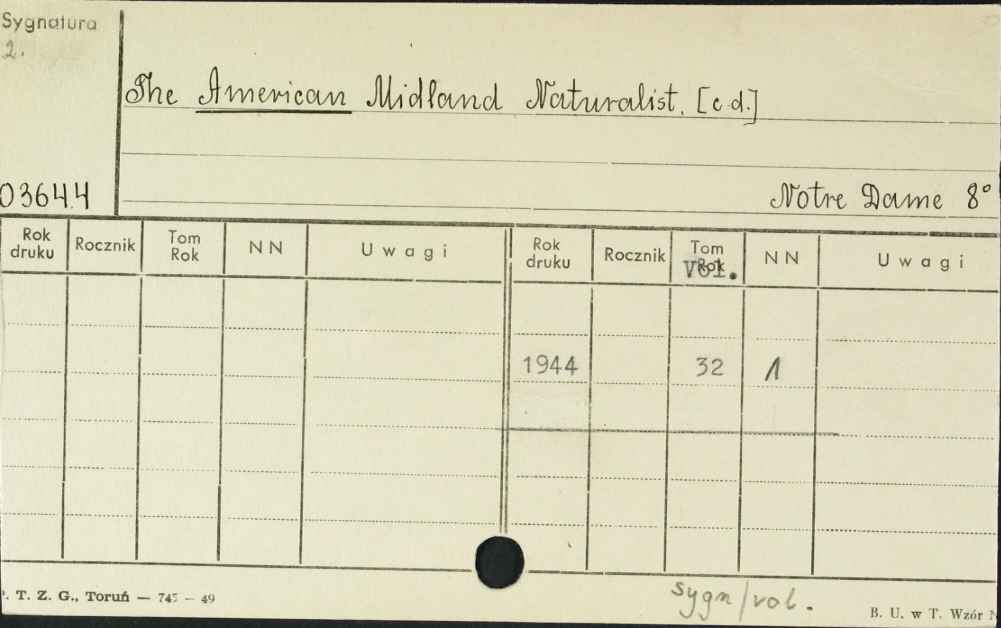 Sygnatura
2.
The American Midland Naturalist. [c.d.]
03644
Notre Dame 8°
Rok druku Rocznik Tom Rok NN Uwagi Rok druku Rocznik Tom Rok Vol. NN Uwagi
1944 32 1
T. Z. G., Toruń — 745 — 49
sygn/vol.
B. U. w T. Wzór